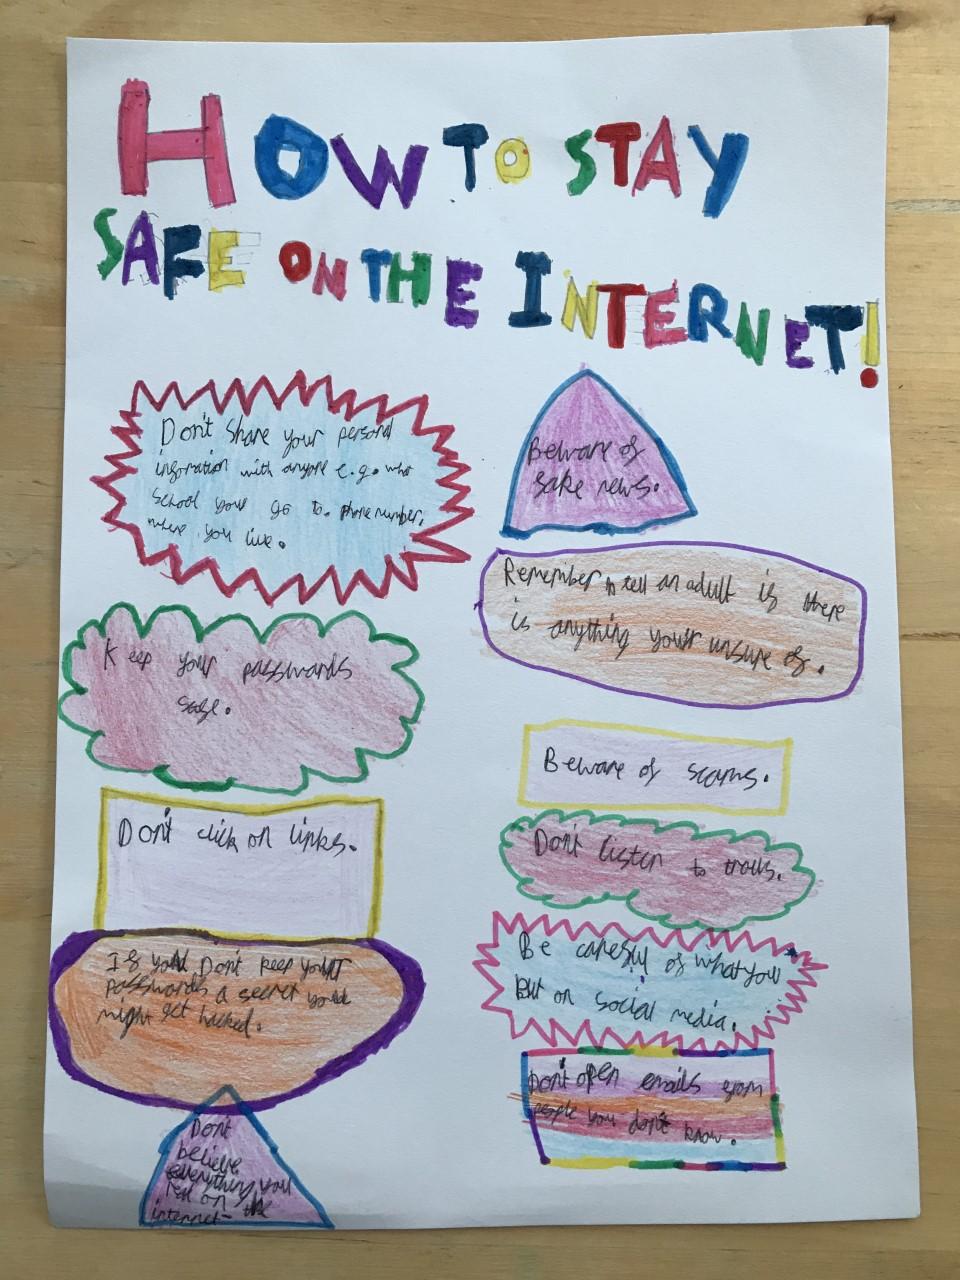 HOW TO STAY
SAFE ON THE INTERNET!
Don't share your personal
infomation with anyone e.g. who
school your go to. phone number,
where you live.
Keep your passwards
safe.
Don't click on links.
If you Don't keep your
passwards a secret you
might get hacked.
Don't
believe
everything you
on the
internet
Beware of
fake news.
Remember to tell an adult if there
is anything your unsure of.
Beware of scams.
Don't listen to trolls.
Be careful of what you
put on social media.
Don't open emails from
people you don't know.